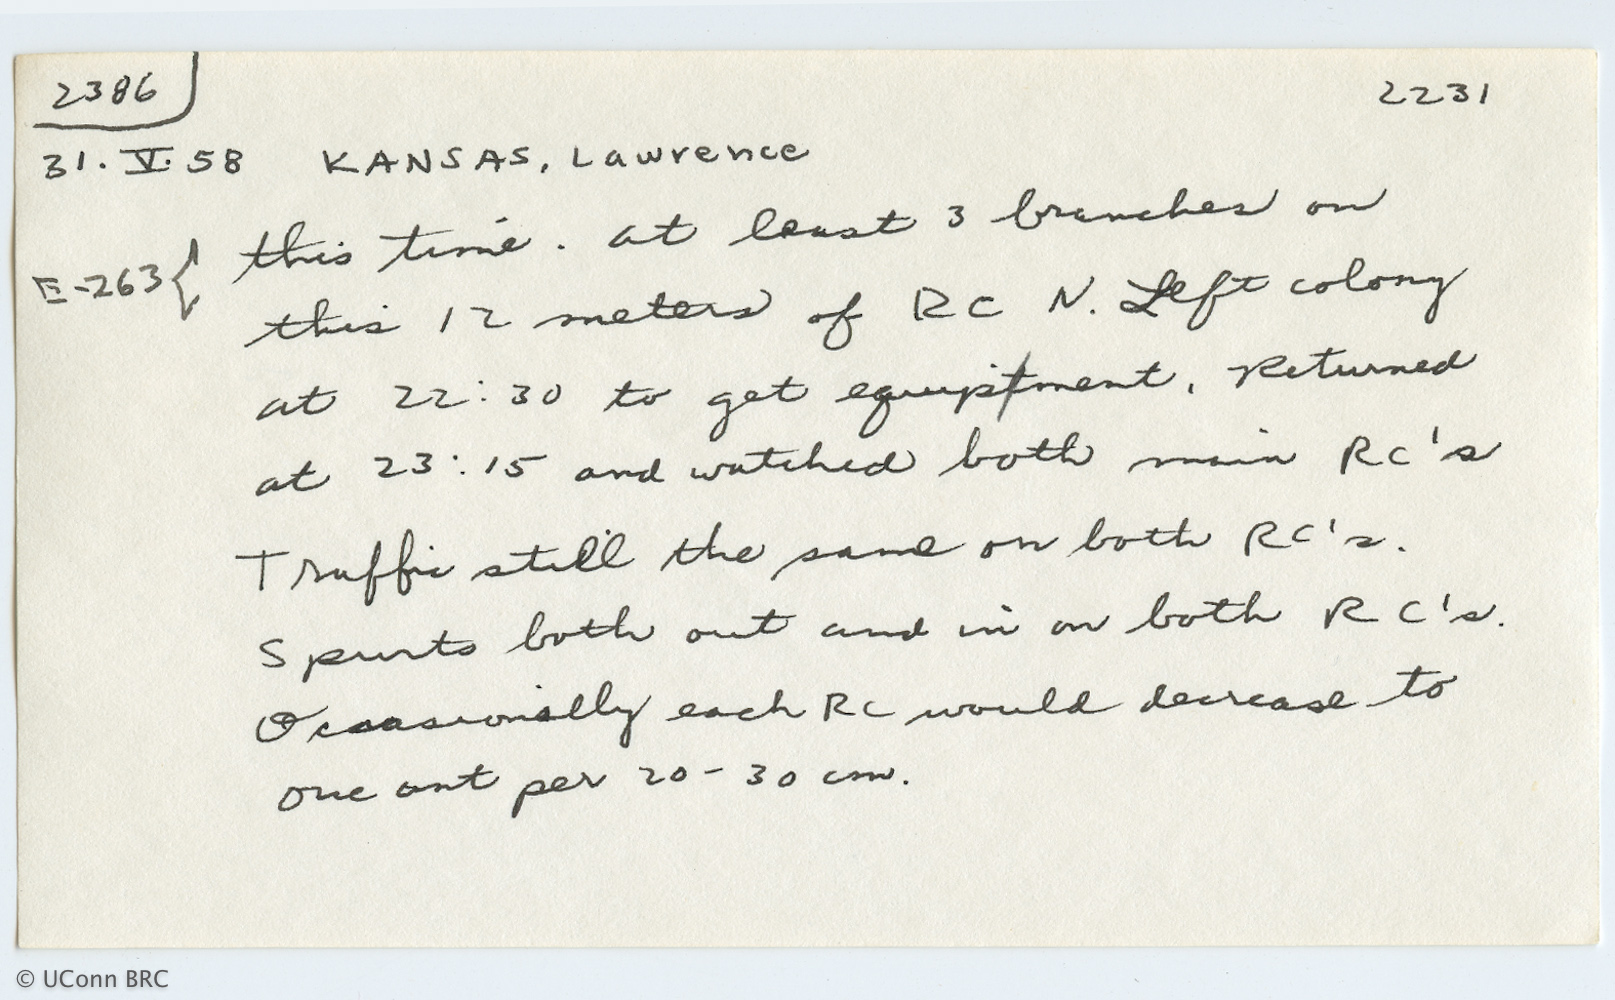 2386
2231
31.V.58 KANSAS, Lawrence
E-263 { this time. at least 3 branches on
this 12 meters of RC N. Left colony
at 22:30 to get equipment. Returned
at 23:15 and watched both main RC's
Traffic still the same on both RC's.
Spurts both out and in on both RC's.
Ocassionally each RC would decrease to
one ant per 20-30 cm.
© UConn BRC